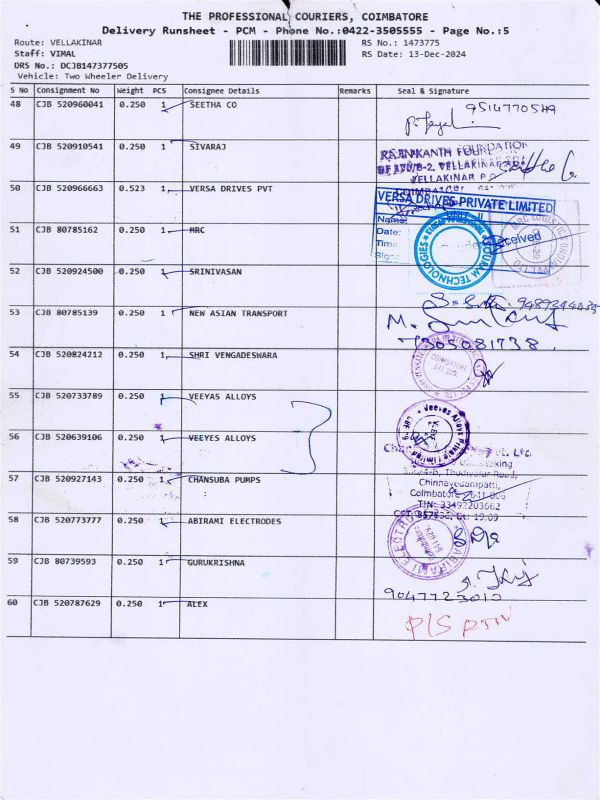 THE PROFESSIONAL COURIERS, COIMBATORE
Delivery Runsheet - PCM - Phone No.:0422-3505555 - Page No.:5
Route: VELLAKINAR
RS No.: 1473775
Staff: VIMAL
RS Date: 13-Dec-2024
DRS No.: DCJB147377505
Vehicle: Two Wheeler Delivery
S No Consignment No Weight PCS Consignee Details Remarks Seal & Signature
48 CJB 520960041 0.250 1 SEETHA CO
49 CJB 520910541 0.250 1 SIVARAJ
RAJNIKANTH FOUNDATION
VELLAKINAR
50 CJB 520966663 0.523 1 VERSA DRIVES PVT
VERSA DRIVES PRIVATE LIMITED
Name:
Date:
51 CJB 80785162 0.250 1 MRC
Received
TECHNOLOGIES
52 CJB 520924500 0.250 1 SRINIVASAN
53 CJB 80785139 0.250 1 NEW ASIAN TRANSPORT
54 CJB 520824212 0.250 1 SHRI VENGADESWARA
COIMBATORE
55 CJB 520733789 0.250 1 VEEYAS ALLOYS
56 CJB 520639106 0.250 1 VEEYES ALLOYS
Veeyes Alloys Private Limited
57 CJB 520927143 0.250 1 CHANSUBA PUMPS
Thudiyalur Road,
Chinnavedampatti,
Coimbatore - 641 006
TIN: 33492203662
58 CJB 520773777 0.250 1 ABIRAMI ELECTRODES
59 CJB 80739593 0.250 1 GURUKRISHNA
9047723010
60 CJB 520787629 0.250 1 ALEX